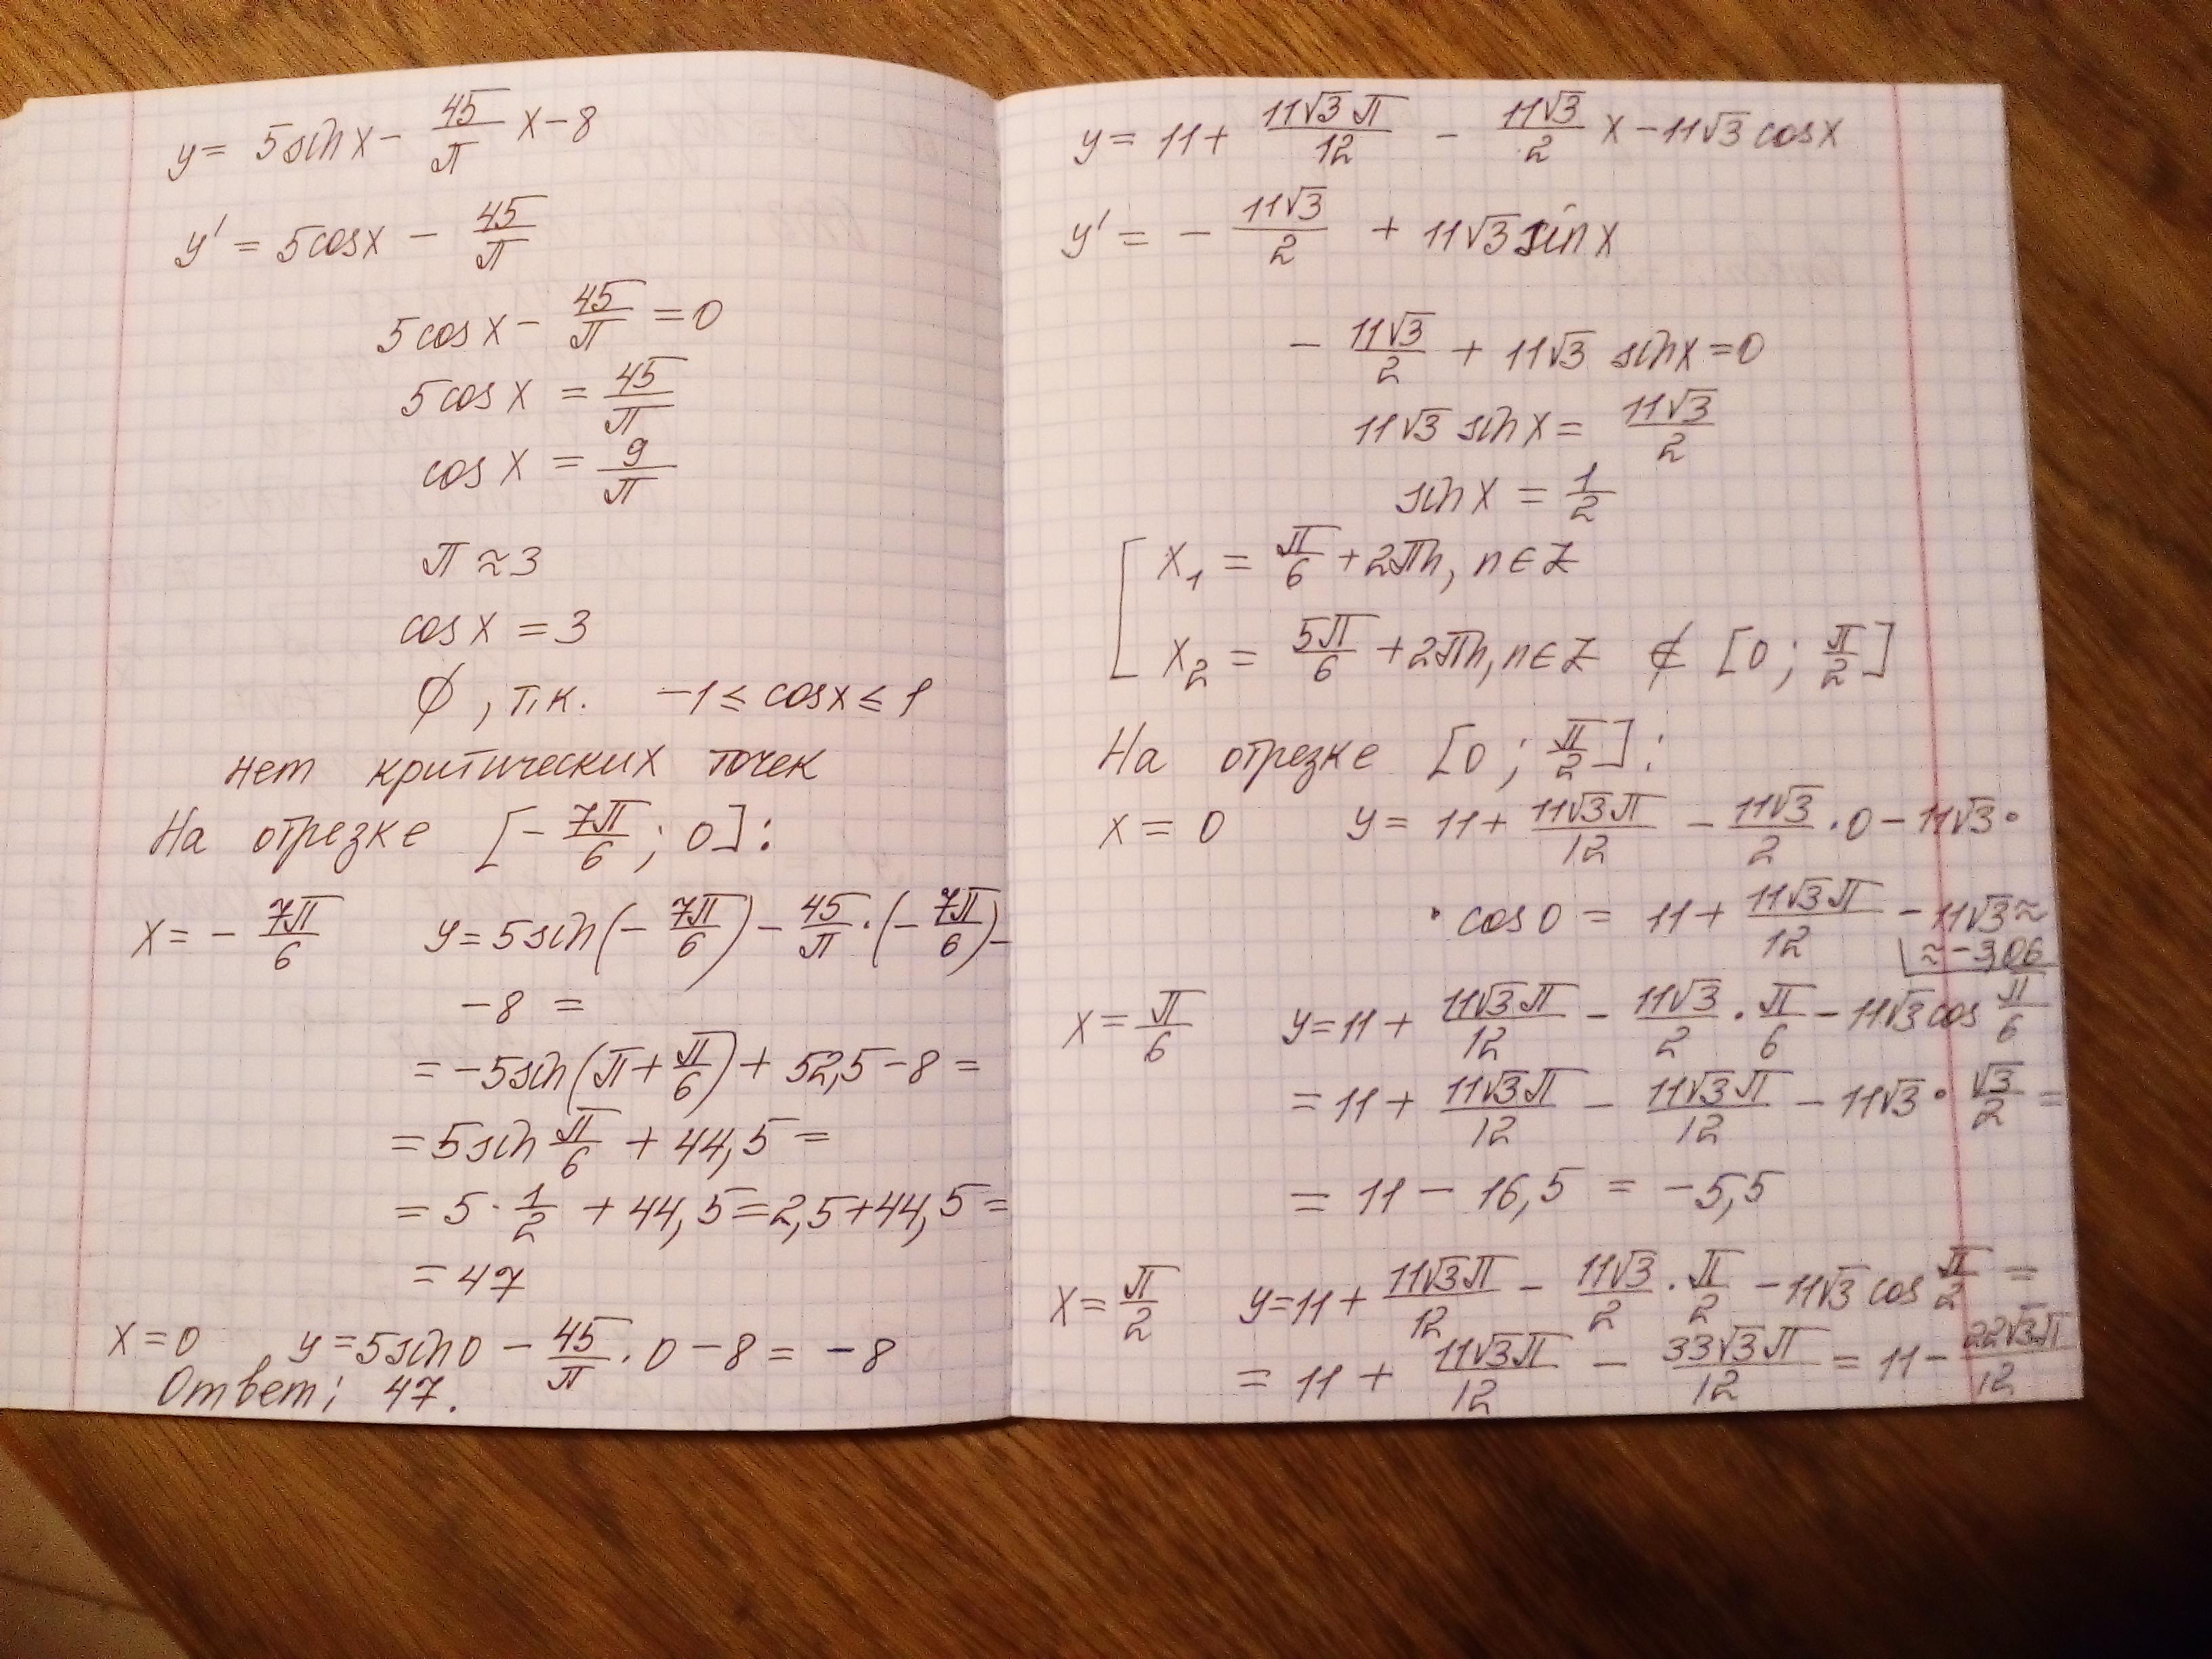 y = 5sin x − 45/π x − 8
y' = 5cos x − 45/π
5cos x − 45/π = 0
5cos x = 45/π
cos x = 9/π
π ≈ 3
cos x = 3
∅, т.к. −1 ≤ cos x ≤ 1
нет критических точек
На отрезке [−7π/6; 0]:
x = −7π/6 y = 5sin(−7π/6) − 45/π · (−7π/6) −
−8 =
= −5sin(π + π/6) + 52,5 − 8 =
= 5sin π/6 + 44,5 =
= 5 · 1/2 + 44,5 = 2,5 + 44,5 =
= 47
x = 0 y = 5sin0 − 45/π · 0 − 8 = −8
Ответ: 47.
y = 11 + 11√3π/12 − 11√3/2 x − 11√3 cos x
y' = −11√3/2 + 11√3 sin x
−11√3/2 + 11√3 sin x = 0
11√3 sin x = 11√3/2
sin x = 1/2
[ x₁ = π/6 + 2πn, n ∈ Z
x₂ = 5π/6 + 2πn, n ∈ Z ∉ [0; π/2]
На отрезке [0; π/2]:
x = 0 y = 11 + 11√3π/12 − 11√3/2 · 0 − 11√3 ·
· cos 0 = 11 + 11√3π/12 − 11√3 ≈
≈ −3,06
x = π/6 y = 11 + 11√3π/12 − 11√3/2 · π/6 − 11√3 cos π/6
= 11 + 11√3π/12 − 11√3π/12 − 11√3 · √3/2 =
= 11 − 16,5 = −5,5
x = π/2 y = 11 + 11√3π/12 − 11√3/2 · π/2 − 11√3 cos π/2 =
= 11 + 11√3π/12 − 33√3π/12 = 11 − 22√3π/12